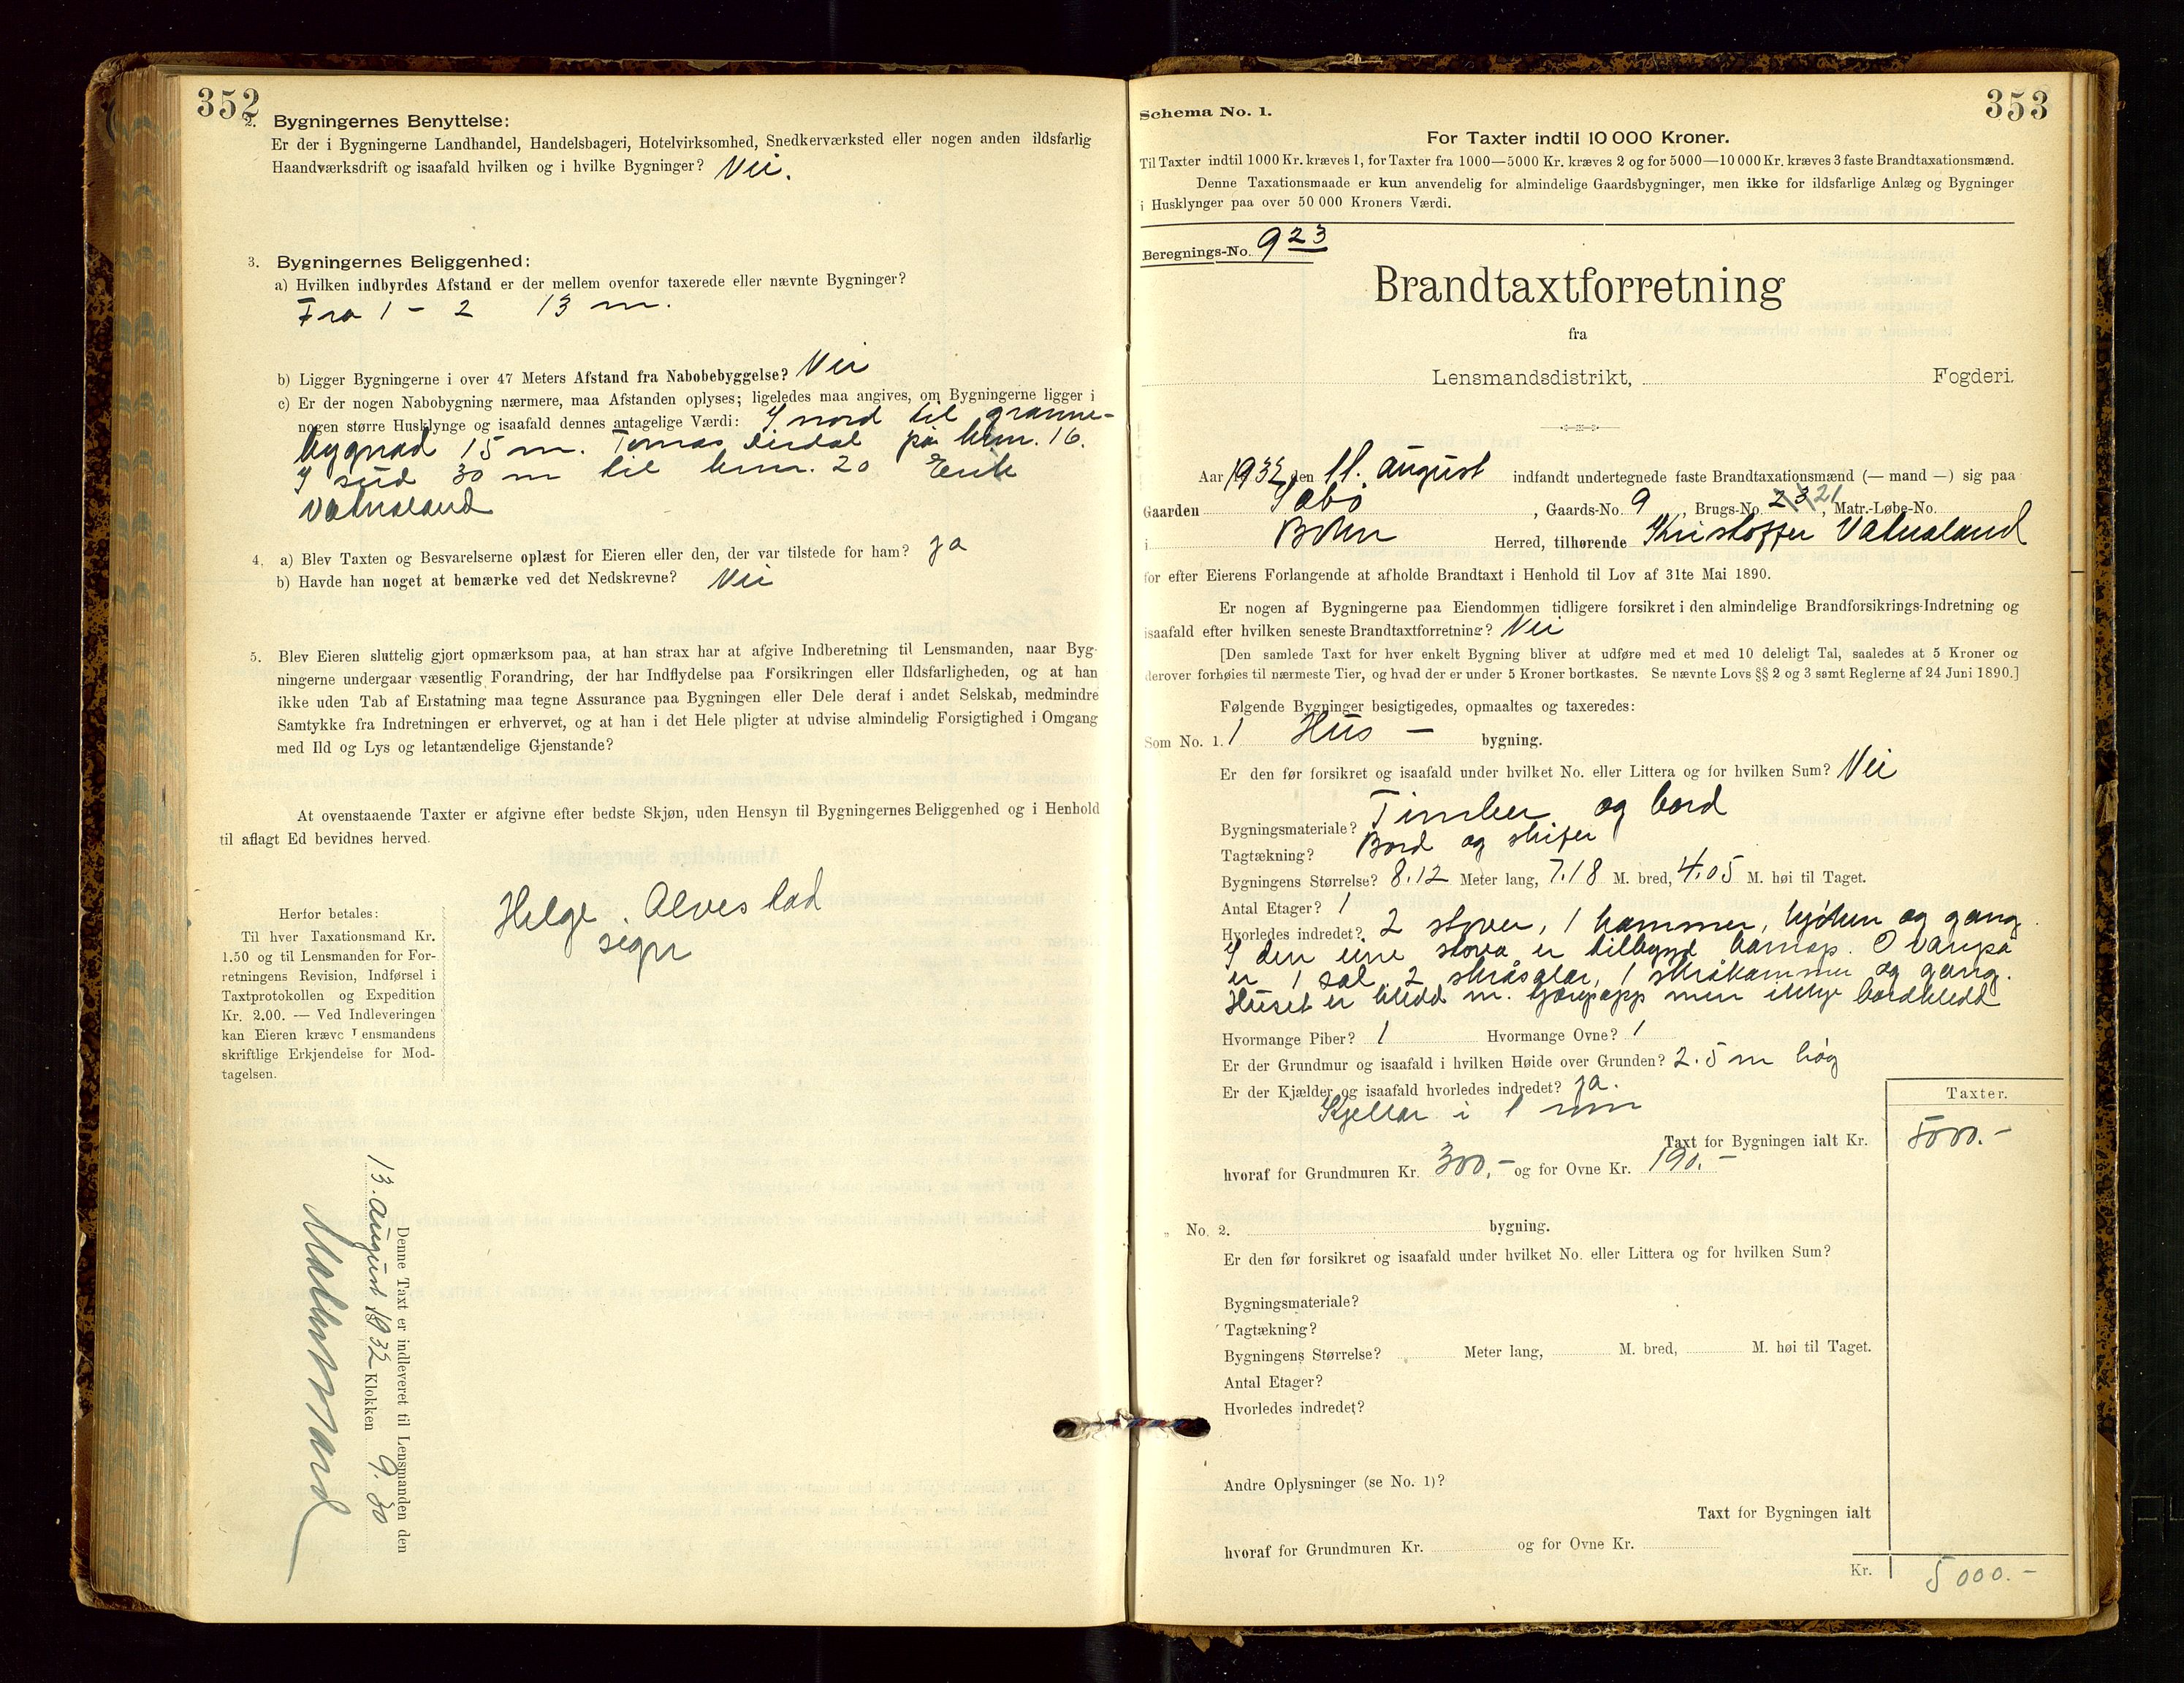 352
2. Bygningernes Benyttelse:
Er der i Bygningerne Landhandel, Handelsbageri, Hotelvirksomhed, Snedkerværksted eller nogen anden ildsfarlig
Haandværksdrift og isaafald hvilken og i hvilke Bygninger? Nei.
3. Bygningernes Beliggenhed:
a) Hvilken indbyrdes Afstand er der mellem ovenfor taxerede eller nævnte Bygninger?
Fra 1 - 2 13 m.
b) Ligger Bygningerne i over 47 Meters Afstand fra Nabobebyggelse? Nei
c) Er der nogen Nabobygning nærmere, maa Afstanden oplyses; ligeledes maa angives, om Bygningerne ligger i
nogen større Husklynge og isaafald dennes antagelige Værdi: I nord til granne-
bygnad 15 m. Tomas på brnr. 16.
I sud 30 m til brnr. 20 Erik
Vatnaland
4. a) Blev Taxten og Besvarelserne oplæst for Eieren eller den, der var tilstede for ham? ja
b) Havde han noget at bemærke ved det Nedskrevne? Nei
5. Blev Eieren sluttelig gjort opmærksom paa, at han strax har at afgive Indberetning til Lensmanden, naar Byg-
ningerne undergaar væsentlig Forandring, der har Indflydelse paa Forsikringen eller Ildsfarligheden, og at han
ikke uden Tab af Erstatning maa tegne Assurance paa Bygningen eller Dele deraf i andet Selskab, medmindre
Samtykke fra Indretningen er erhvervet, og at han i det Hele pligter at udvise almindelig Forsigtighed i Omgang
med Ild og Lys og letantændelige Gjenstande?
At ovenstaaende Taxter er afgivne efter bedste Skjøn, uden Hensyn til Bygningernes Beliggenhed og i Henhold
til aflagt Ed bevidnes herved.
Helge Alvestad
sign
Herfor betales:
Til hver Taxationsmand Kr.
1.50 og til Lensmanden for For-
retningens Revision, Indførsel i
Taxtprotokollen og Expedition
Kr. 2.00. — Ved Indleveringen
kan Eieren kræve Lensmandens
skriftlige Erkjendelse for Mod-
tagelsen.
Denne Taxt er indleveret til Lensmanden den
13. august 1932 Klokken 9.30
353
Schema No. 1.
For Taxter indtil 10 000 Kroner.
Til Taxter indtil 1000 Kr. kræves 1, for Taxter fra 1000—5000 Kr. kræves 2 og for 5000—10 000 Kr. kræves 3 faste Brandtaxationsmænd.
Denne Taxationsmaade er kun anvendelig for almindelige Gaardsbygninger, men ikke for ildsfarlige Anlæg og Bygninger
i Husklynger paa over 50 000 Kroners Værdi.
Beregnings-No. 923
Brandtaxtforretning
fra
Lensmandsdistrikt, Fogderi.
Aar 1932, den 11. august indfandt undertegnede faste Brandtaxationsmænd (— mand —) sig paa
Gaarden Sæbø, Gaards-No. 9, Brugs-No. 23 21, Matr.-Løbe-No.
i Bokn Herred, tilhørende Kristoffer Vatnaland
for efter Eierens Forlangende at afholde Brandtaxt i Henhold til Lov af 31te Mai 1890.
Er nogen af Bygningerne paa Eiendommen tidligere forsikret i den almindelige Brandforsikrings-Indretning og
isaafald efter hvilken seneste Brandtaxtforretning? Nei
[Den samlede Taxt for hver enkelt Bygning bliver at udføre med et med 10 deleligt Tal, saaledes at 5 Kroner og
derover forhøies til nærmeste Tier, og hvad der er under 5 Kroner bortkastes. Se nævnte Lovs §§ 2 og 3 samt Reglerne af 24 Juni 1890.]
Følgende Bygninger besigtigedes, opmaaltes og taxeredes:
Som No. 1. 1 Hus — bygning.
Er den før forsikret og isaafald under hvilket No. eller Littera og for hvilken Sum? Nei
Bygningsmateriale? Timber og bord
Tagtækning? Bord og skifer
Bygningens Størrelse? 8.12 Meter lang, 7.18 M. bred, 4.05 M. høi til Taget.
Antal Etager? 1
Hvorledes indredet? 2 stover, 1 kammer, kjøken og gang.
I den eine stova er tilbygd Ovanpå
er 1 sal 2 1 skråkammer og gang.
Huset er kledd m. men ikkje bordkledd
Hvormange Piber? 1 Hvormange Ovne? 1
Er der Grundmur og isaafald i hvilken Høide over Grunden? 2.5 m høg
Er der Kjælder og isaafald hvorledes indredet? ja.
Kjellar i 1 rum
Taxter.
Taxt for Bygningen ialt Kr. 5000.-
hvoraf for Grundmuren Kr. 300,- og for Ovne Kr. 190.-
„ No. 2. bygning.
Er den før forsikret og isaafald under hvilket No. eller Littera og for hvilken Sum?
Bygningsmateriale?
Tagtækning?
Bygningens Størrelse? Meter lang, M. bred, M. høi til Taget.
Antal Etager?
Hvorledes indredet?
Andre Oplysninger (se No. 1)?
Taxt for Bygningen ialt
hvoraf for Grundmuren Kr. og for Ovne Kr.
Kr. 5000.-